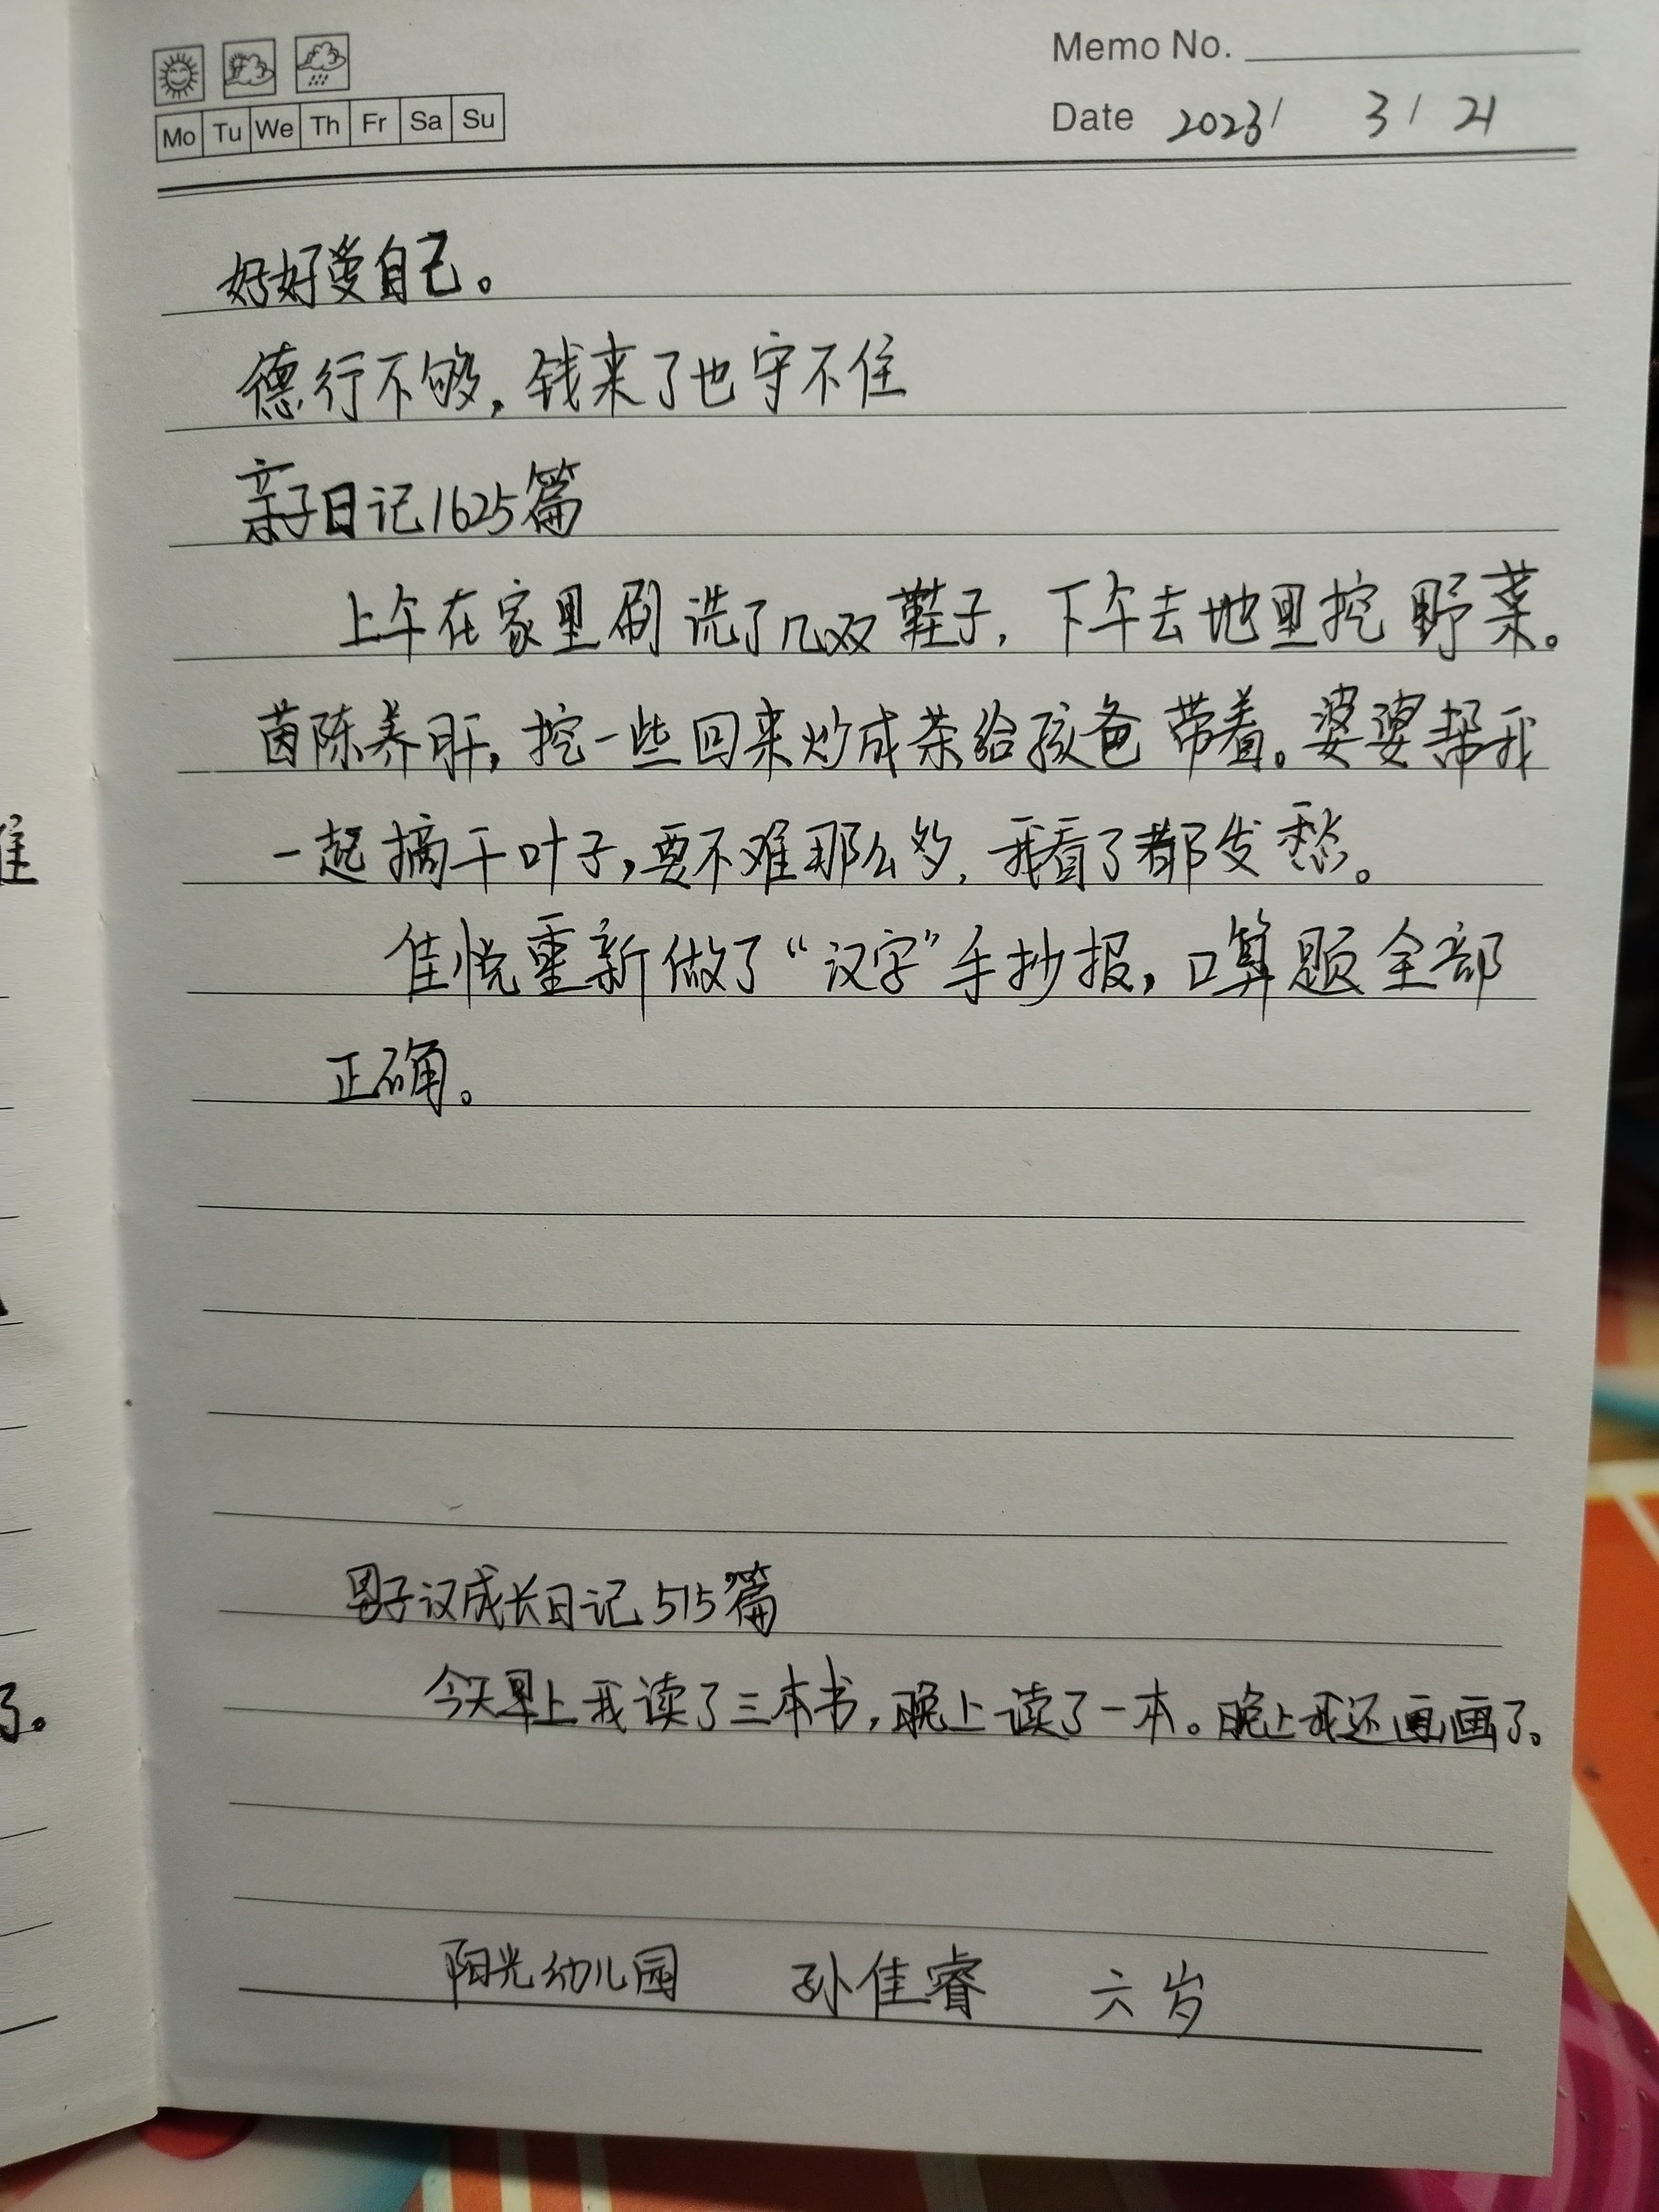 Memo No.
Mo Tu We Th Fr Sa Su
Date 2023/ 3/ 21
好好爱自己。
德行不够,钱来了也守不住
亲子日记1625篇
上午在家里刷洗了几双鞋子,下午去地里挖野菜。
茵陈养肝,挖一些回来炒成茶给孩爸带着。婆婆帮我
一起摘干叶子,要不难那么多,我看了都发愁。
佳悦重新做了“汉字”手抄报,口算题全部
正确。
男子汉成长日记515篇
今天早上我读了三本书,晚上读了一本。晚上我还画画了。
阳光幼儿园 孙佳睿 六岁